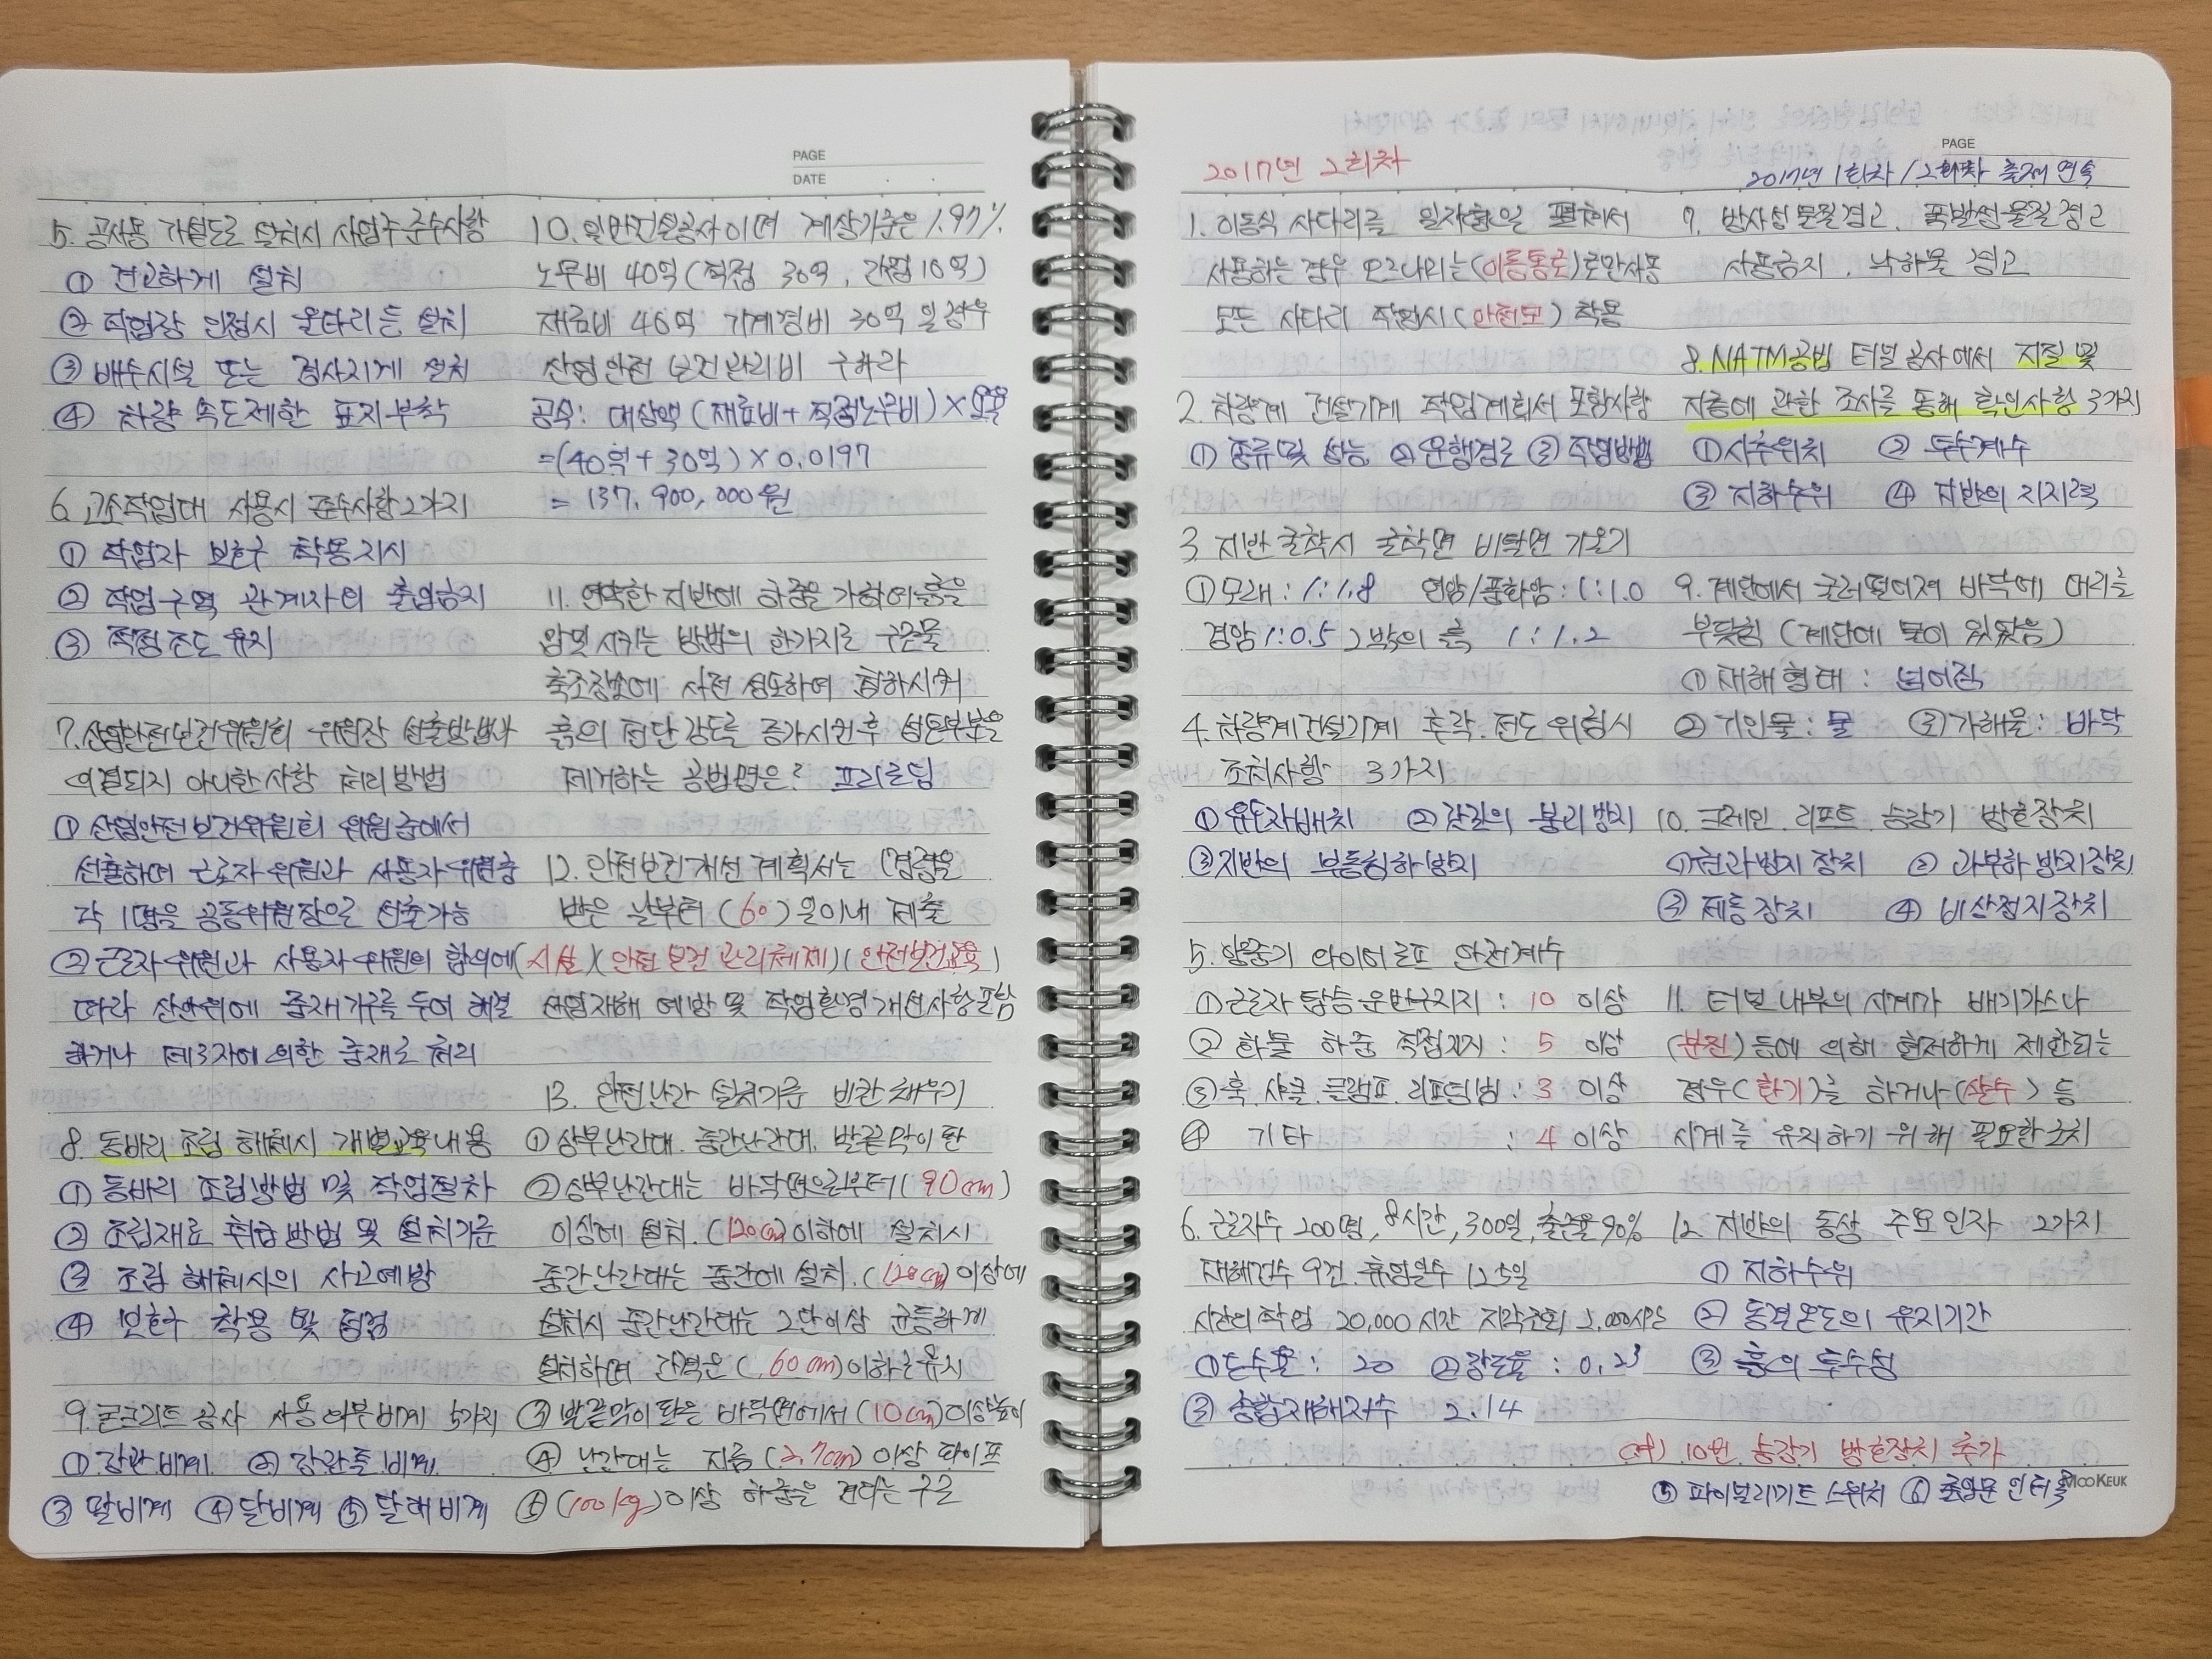 PAGE
DATE
5. 공사용 가설도로 설치시 사업주 준수사항
① 견고하게 설치
② 작업장 인접시 울타리 등 설치
③ 배수시설 또는 경사지게 설치
④ 차량 속도제한 표지부착
6. 고소작업대 사용시 준수사항 2가지
① 작업자 보호구 착용지시
② 작업구역 관계자외 출입금지
③ 적정조도 유지
7. 산업안전보건위원회 위원장 선출방법과
의결되지 아니한 사항 처리방법
① 산업안전보건위원회 위원중에서
선출하며 근로자 위원과 사용자 위원중
각 1명을 공동위원장으로 선출가능
② 근로자위원과 사용자위원의 합의에
따라 산안위에 중재기구를 두어 해결
하거나 제3자에 의한 중재로 처리
8. 동바리 조립 해체시 개별교육내용
① 동바리 조립방법 및 작업절차
② 조립재료 취급방법 및 설치기준
③ 조립 해체시의 사고예방
④ 보호구 착용 및 점검
9. 콘크리트 공사 사용 외부비계 5가지
① 강관비계 ② 강관틀비계
③ 말비계 ④ 달비계 ⑤ 달대비계
10. 일반건설공사이며 계상기준은 1.97%
노무비 40억 (직접 30억, 간접 10억)
재료비 40억 기계경비 30억 일경우
산업안전 보건관리비 구하라
공식: 대상액 (재료비 + 직접노무비) × 요율
=(40억+30억) × 0.0197
= 137,900,000원
11. 연약한 지반에 하중을 가하여 흙을
압밀시키는 방법의 한가지로 구조물
축조장소에 사전 성토하여 침하시켜
흙의 전단강도를 증가시킨 후 성토부분을
제거하는 공법명은? 프리로딩
12. 안전보건개선 계획서는 (명령을
받은 날부터 (60)일이내 제출
(시설)(안전보건관리체제)(안전보건교육)
산업재해 예방 및 작업환경 개선사항 포함
13. 안전난간 설치기준 빈칸 채우기
① 상부난간대. 중간난간대. 발끝막이판
② 상부난간대는 바닥면으로부터 (90cm)
이상에 설치. (120cm)이하에 설치시
중간난간대는 중간에 설치. (120cm)이상에
설치시 중간난간대는 2단이상 균등하게
설치하며 간격은 (60cm)이하로 유지
③ 발끝막이판은 바닥면에서 (10cm)이상높이
④ 난간대는 지름 (2.7cm) 이상 파이프
⑤ (100kg)이상 하중을 견디는 구조
2017년 2회차
PAGE
2017년 1회차 / 2회차 출제 연속
1. 이동식 사다리를 일자형으로 펼쳐서
사용하는 경우 오르내리는 (이동통로)로만사용
모든 사다리 작업시 (안전모) 착용
2. 차량계 건설기계 작업계획서 포함사항
① 종류 및 성능 ② 운행경로 ③ 작업방법
3. 지반 굴착시 굴착면 비탈면 기울기
① 모래: 1:1.8 연암/풍화암: 1:1.0
경암 1:0.5 그밖의 흙 1:1.2
4. 차량계건설기계 추락. 전도 위험시
조치사항 3가지
① 유도자배치 ② 갓길의 붕괴방지
③ 지반의 부동침하방지
5. 양중기 와이어로프 안전계수
① 근로자 탑승 운반구지지: 10 이상
② 화물 하중 직접지지: 5 이상
③ 훅. 샤클. 클램프. 리프팅빔: 3 이상
④ 기타 : 4 이상
6. 근로자수 200명, 8시간, 300일, 출근율 90%
재해건수 9건. 휴업일수 125일
시간외작업 20,000시간 지각조퇴 2,000시간
① 도수율: 20 ② 강도율: 0.23
③ 종합재해지수 2.14
7. 방사성물질경고. 폭발성물질경고
사용금지. 낙하물 경고
8. NATM공법 터널공사에서 지질 및
지층에 관한 조사를 통해 확인사항 3가지
① 시추위치 ② 투수계수
③ 지하수위 ④ 지반의 지지력
9. 계단에서 굴러떨어져 바닥에 머리를
부딪힘 (계단에 물이 있었음)
① 재해형태: 넘어짐
② 기인물: 물 ③ 가해물: 바닥
10. 크레인. 리프트. 승강기 방호장치
① 권과방지 장치 ② 과부하방지장치
③ 제동장치 ④ 비상정지장치
11. 터널내부의 시계가 배기가스나
(분진)등에 의해 현저하게 제한되는
경우 (환기)를 하거나 (살수) 등
시계를 유지하기 위해 필요한 조치
12. 지반의 동상 주요인자 2가지
① 지하수위
② 동결온도의 유지기간
③ 흙의 투수성
10번 승강기 방호장치 추가
⑤ 파이널리미트 스위치 ⑥ 출입문 인터록
MOOKEUK